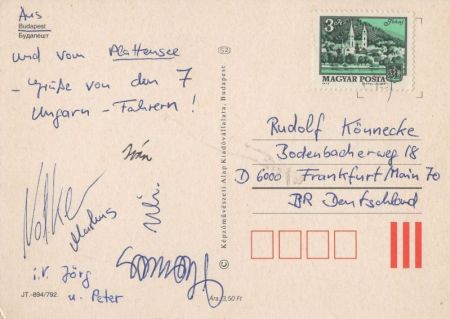 Aus
Budapest
Будапешт
und vom Plattensee
Grüße von den 7
Ungarn-Fahrern!
Volker
Markus
Uli
i.V. Jörg
u. Peter
JT.-894/792.
Ára: 3,50 Ft
52
© Képzőművészeti Alap Kiadóvállalata, Budapest
3 Ft
MAGYAR POSTA
Rudolf Könnecke
Bodenbacherweg 18
D 6000 Frankfurt/Main 70
BR Deutschland